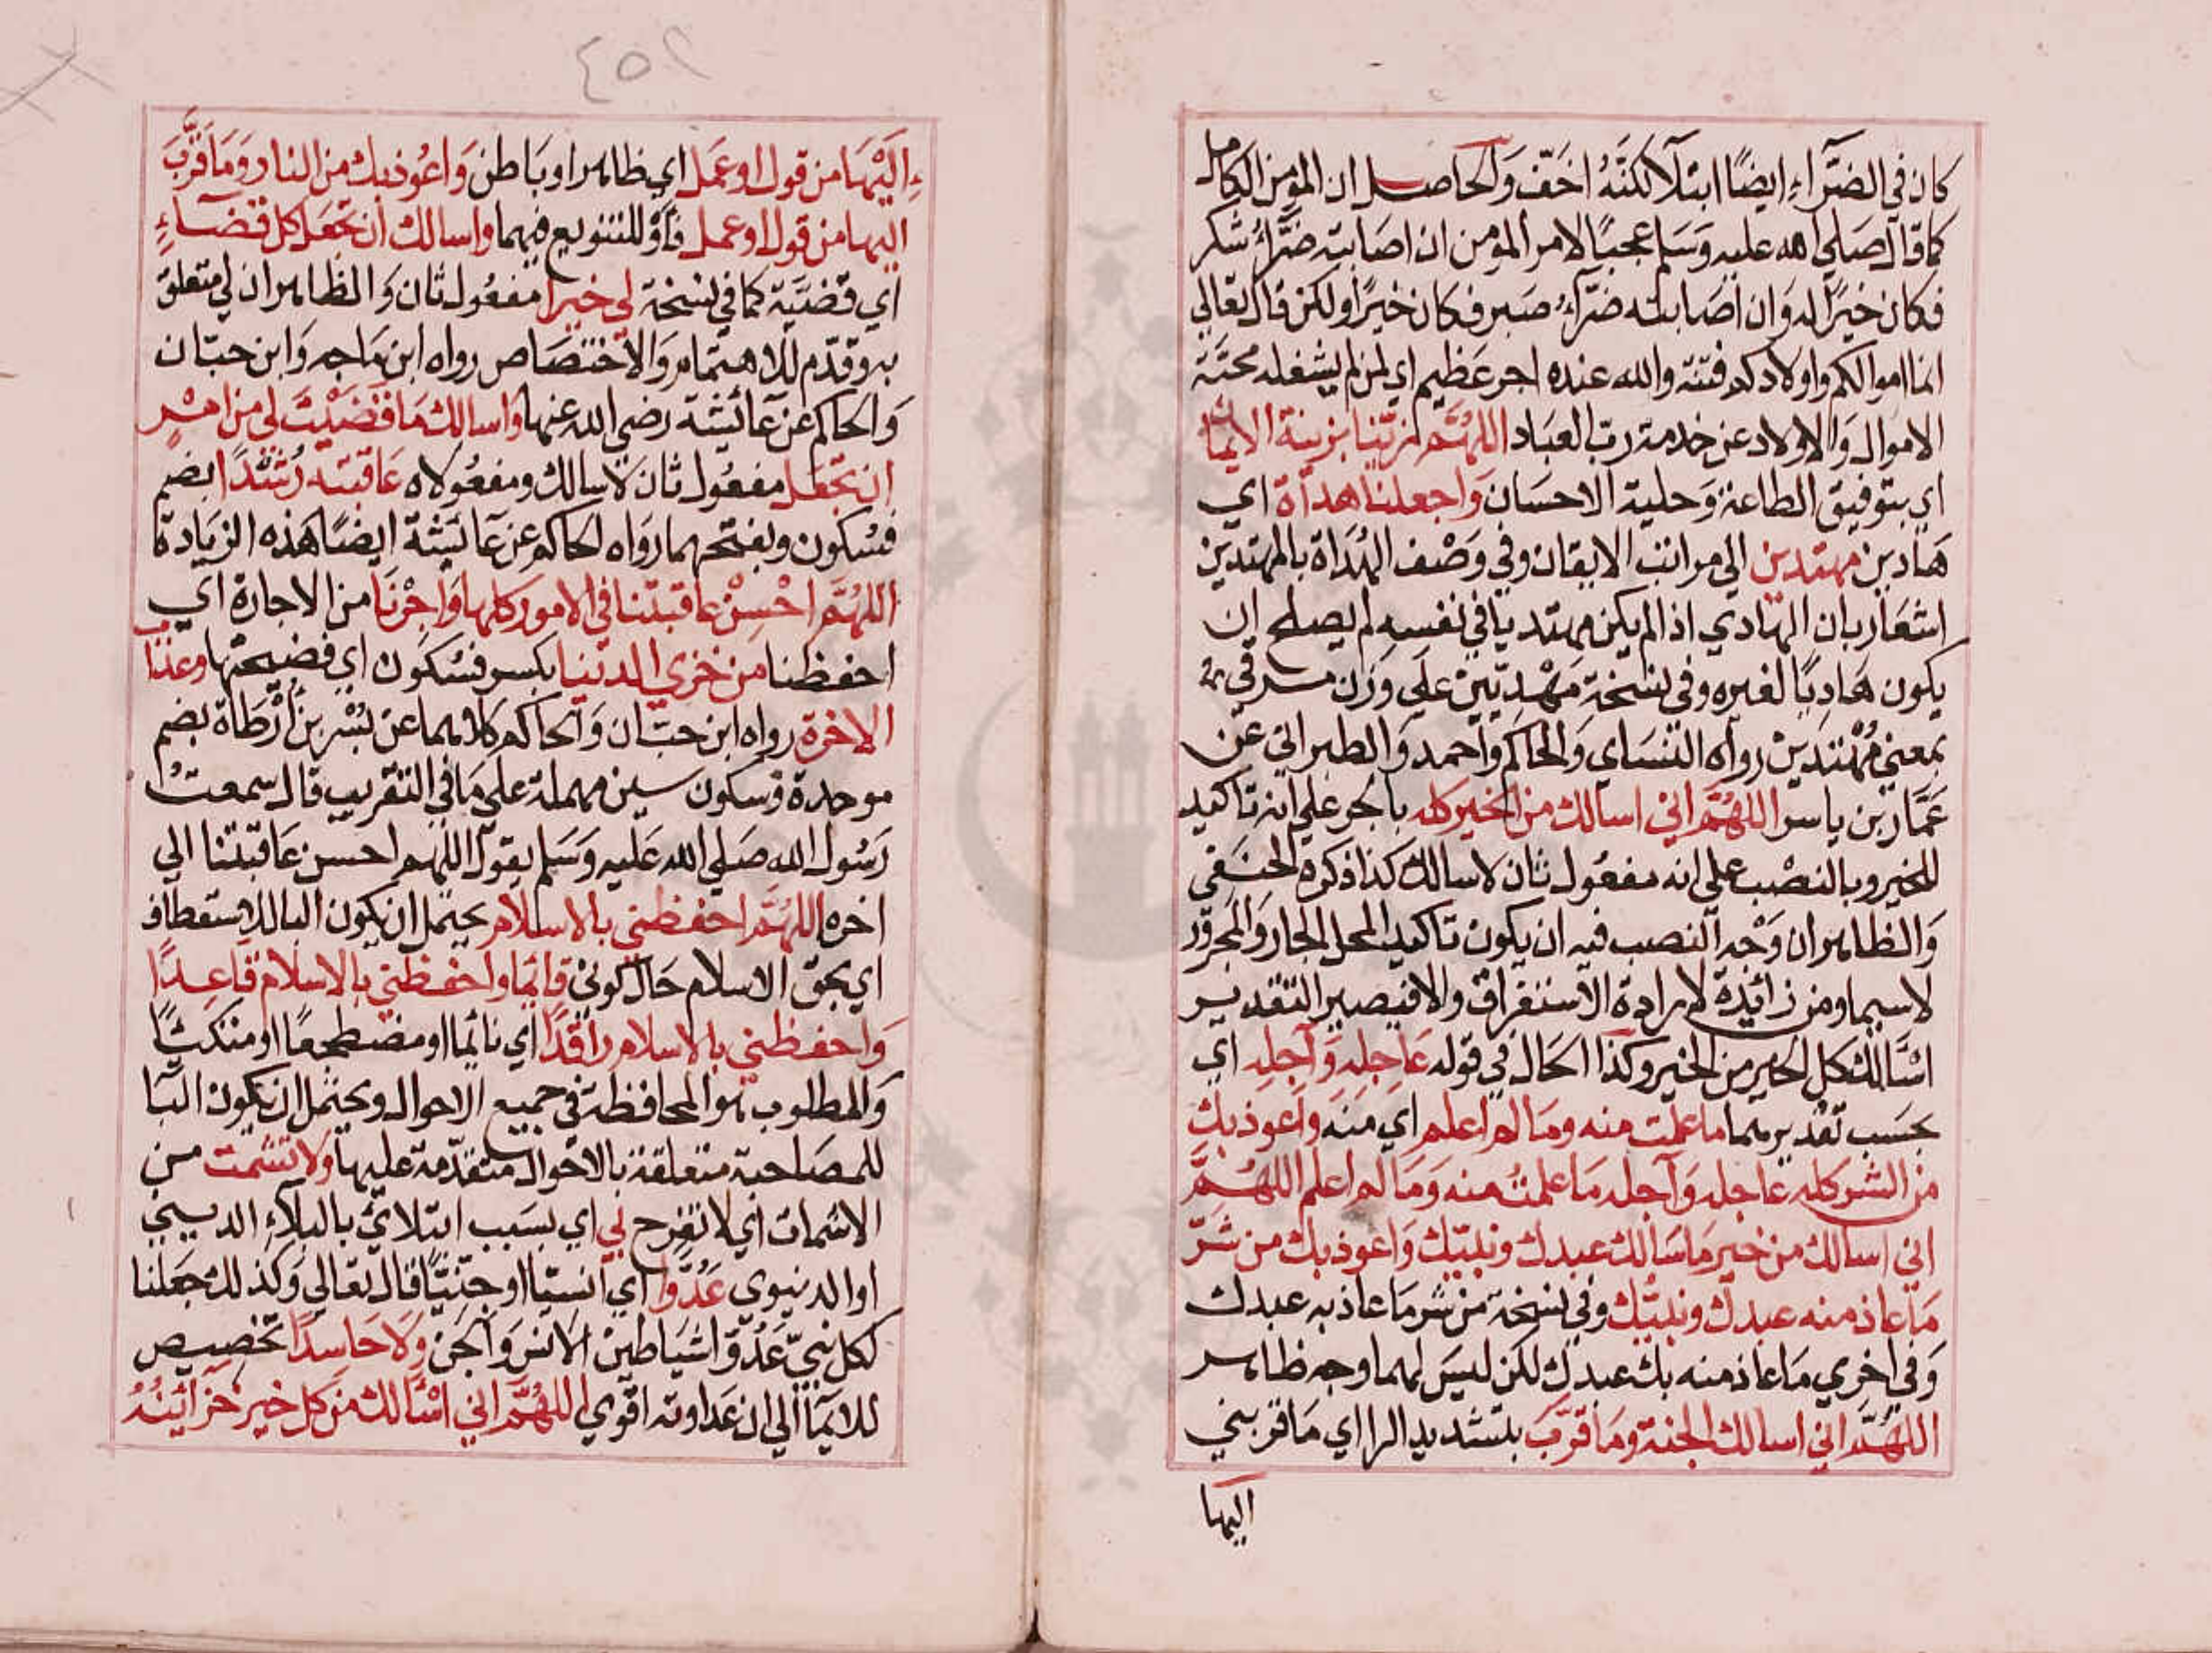 كان في الضرّاء ايضًا ابتلآ لكنّهُ اخَفّ وَالحاصل ان المؤمن الكامل
كما قال صلي الله عليه وَسَلم عجبًا لامر المؤمن ان اصابته ضرّاءُ شكر
فكان خيرًا له وَان اصابته ضرّاءُ صبر فكان خيرًا ولكن قال تعالي
انما اموالكم واولادكم فتنة والله عنده اجر عظيم اي لمن لم يشغله محبّة
الاموال وَالاولاد عن خدمة ربّ العبَاد اللهُمّ زيّنا بزينة الايمان
اي بتوفيق الطاعة وَحلية الاحسَان وَاجعلنا هداة اي
هَادين مهتدين الي مراتب الايقان وفي وَصْف الهُدَاة بالمهتدين
اشعَار بان الهادي اذا لم يكن مهتديا في نفسه لم يصلح ان
يكون هَادِيًا لغيره وفي نسخة مَهْدِيّينْ علي وَزن مرمي
بمعني مُهْتَدينْ رواه النسَاي وَالحاكم وَاحمد وَالطبراني عن
عَمَّار بن ياسر اللهُمّ اني اسالك من الخير كله بالجر علي انه تاكيد
للخير وبالنصْب علي انه مفعُول ثان لاسالك كذا ذكره الحنفي
وَالظاهر ان وَجْه النصب فيه ان يكون تاكيد المحل الجار وَالمجرور
لاسيما ومن زائِدة لارادة الاستغراق والا فيصير التقدير
اسْالك كل الخير من الخير وكذا الحَال في قوله عَاجِلهِ وَآجِلهِ اي
بحسَب تقديرهما ما علمت منه ومَا لم اعلم اي منهَ وَاعوذ بك
من الشر كله عاجله وَآجله مَا علمتُ منه وَمَا لم اعلم اللهُمّ
اني اسالك من خير مَا سَالك عبدك ونبيّك وَاعوذ بك من شَرّ
مَا عاذ منه عبدك ونبيّك وفي نسخة من شر مَا عاذ به عبدك
وَفي اخري مَا عاذ منه بك عبدك لكن ليسَ لهما وجه ظاهر
اللهُمّ اني اسالك الجنة ومَا قرّبَ بتشديد الرا اي مَا قربني
اليها
٤٥٢
اِليْهَا من قول او عَمل اي ظاهر او بَاطن وَاعُوذ بك من النار وَمَا قرّبَ
اليها من قول او عمل فاوْ للتنويع فيهما واسالك ان تجعَل كل قضَاءٍ
اي قضيّة كما في نسخة لي خيرا مفعُول ثان وَالظاهر ان لي متعلق
به وقدّم للاهتمام وَالاختصَاص رواه ابن مَاجه وَابن حبّان
وَالحاكم عن عَائِشة رضي الله عنها وَاسالك مَا قضيْتَ لي من امْرٍ
ان تجْعَل مفعُول ثان لاسالك ومفعُولاه عَاقبته رُشدًا بضم
فسكون وبفتحهما روَاه الحاكم عن عَائشة ايضًا هَذه الزيَادة
اللهُمّ احْسِنْ عاقبتنا في الامور كلها وَاجْرْنا من الاجارة اي
احفظنا من خزي الدنيا بكسر فسُكون اي فضيحتها وعذاب
الاخرة رواه ابن حبّان وَالحاكم كلاهما عن بُسْر بن ارْطَاة بضم
موحدة وَسكون سين مهملة علي مَا في التقريب قال سمعتُ
رَسُول الله صَلي الله عَليه وَسَلم يقول اللهم احسن عَاقبتنا الي
اخره اللهُمّ احفظني بالاسلام يحتمل ان يكون البا للاستعطاف
اي بحق الاسلام حَال كوني قائِمًا وَاحفظني بالاسلام قاعِدًا
وَاحفظني بالاسلام راقدًا اي نائِمًا او مضطجعًا او متكئًا
وَالمطلوب هو المحافظة في جميع الاحوال ويحتمل ان يكون البَا
للمصَاحبة متعلقة بالاحوال متقدّمة عليها وَلا تشمت من
الاشمات اي لا تفرح بي اي بسَبب ابتلائي بالبلآء الديني
او الدنيوي عَدُوّا اي انسيّا او جنيّا قال تعَالي وَكذلك جَعَلنا
لكل نبيّ عَدُوّا شيَاطين الانس وَالجن وَلا حَاسِدًا تخصيص
للايمآ الي ان عَداوته اقوي اللهُمّ اني اسْالك من كل خير خزائنُهُ